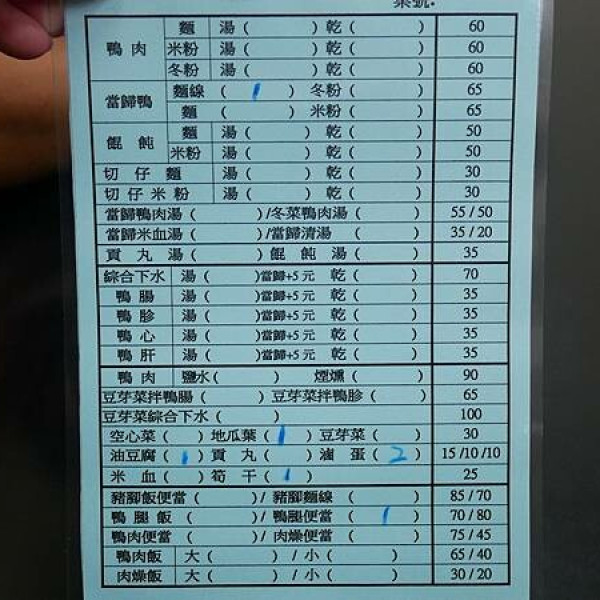 桌號:
鴨肉 麵 湯( )乾( ) 60
米粉 湯( )乾( ) 60
冬粉 湯( )乾( ) 60
當歸鴨 麵線( 1 )冬粉( ) 65
麵( )米粉( ) 65
餛飩 麵 湯( )乾( ) 50
米粉 湯( )乾( ) 50
切仔麵 湯( )乾( ) 30
切仔米粉 湯( )乾( ) 30
當歸鴨肉湯( )/冬菜鴨肉湯( ) 55/50
當歸米血湯( )/當歸清湯( ) 35/20
貢丸湯( )餛飩湯( ) 35
綜合下水 湯( )當歸+5元 乾( ) 70
鴨腸 湯( )當歸+5元 乾( ) 35
鴨胗 湯( )當歸+5元 乾( ) 35
鴨心 湯( )當歸+5元 乾( ) 35
鴨肝 湯( )當歸+5元 乾( ) 35
鴨肉 鹽水( ) 煙燻( ) 90
豆芽菜拌鴨腸( )豆芽菜拌鴨胗( ) 65
豆芽菜綜合下水( ) 100
空心菜( )地瓜葉( 1 )豆芽菜( ) 30
油豆腐( 1 )貢丸( )滷蛋( 2 ) 15/10/10
米血( )筍干( 1 ) 25
豬腳飯便當( )/豬腳麵線( ) 85/70
鴨腿飯( )/鴨腿便當( 1 ) 70/80
鴨肉便當( )/肉燥便當( ) 75/45
鴨肉飯 大( )/小( ) 65/40
肉燥飯 大( )/小( ) 30/20